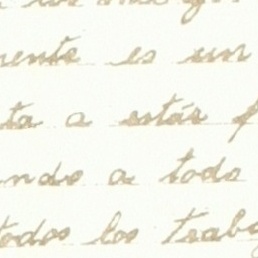 mente es un
ta a estár
ndo a todo
todos los traba